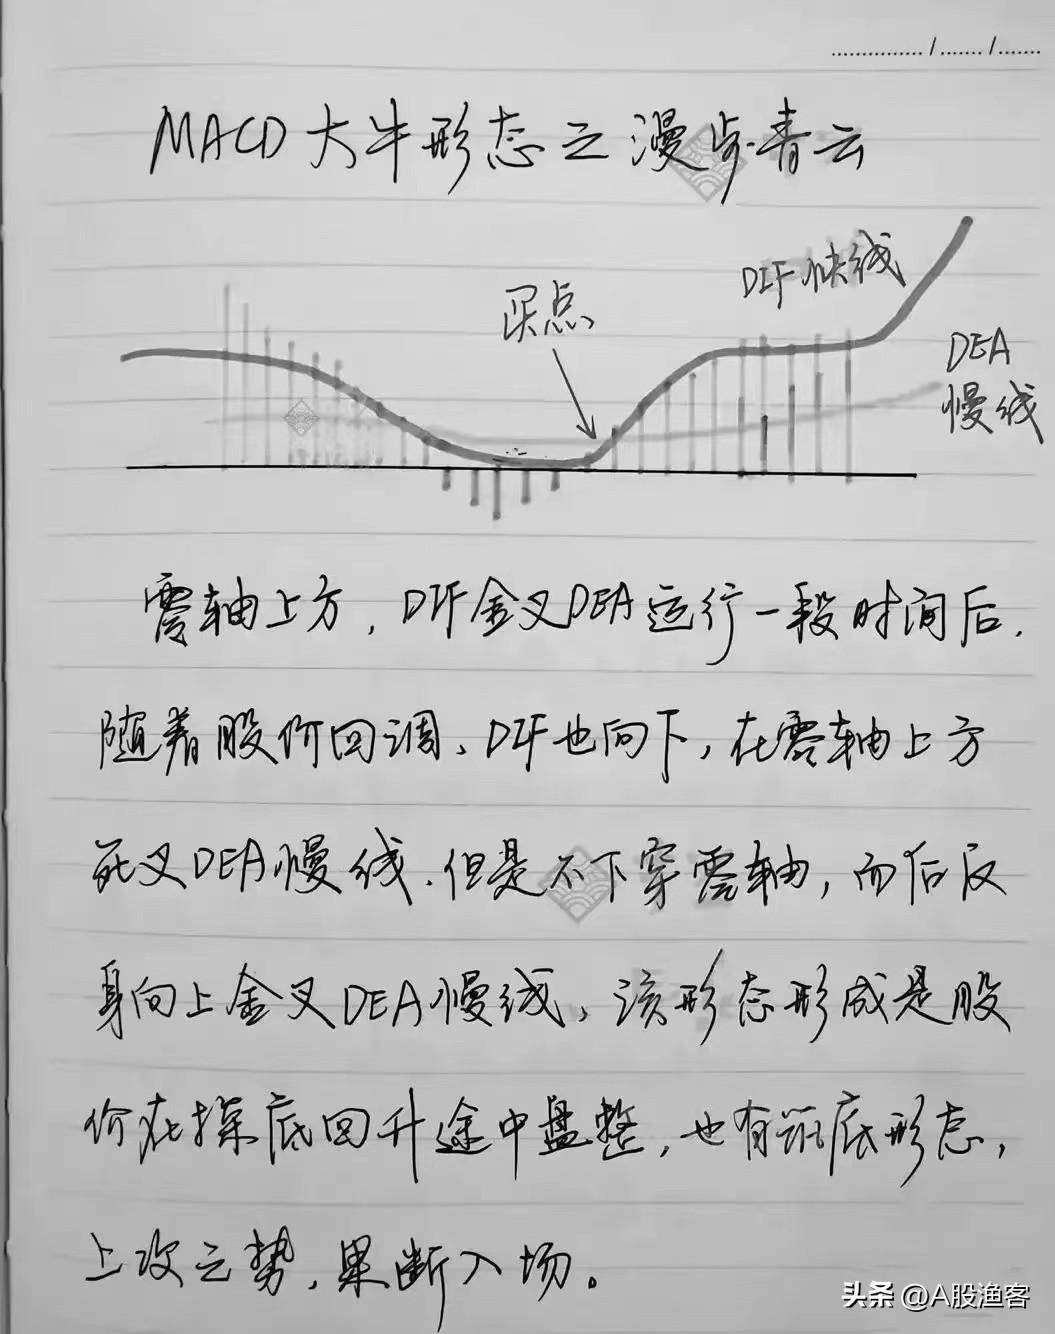 MACD大牛形态之漫步青云
买点
DIF快线
DEA
慢线
零轴上方，DIF金叉DEA运行一段时间后，
随着股价回调、DIF也向下，在零轴上方
死叉DEA慢线．但是不下穿零轴，而后反
身向上金叉DEA慢线，该形态形成是股
价在探底回升途中盘整，也有筑底形态，
上攻之势，果断入场。
头条 @A股渔客